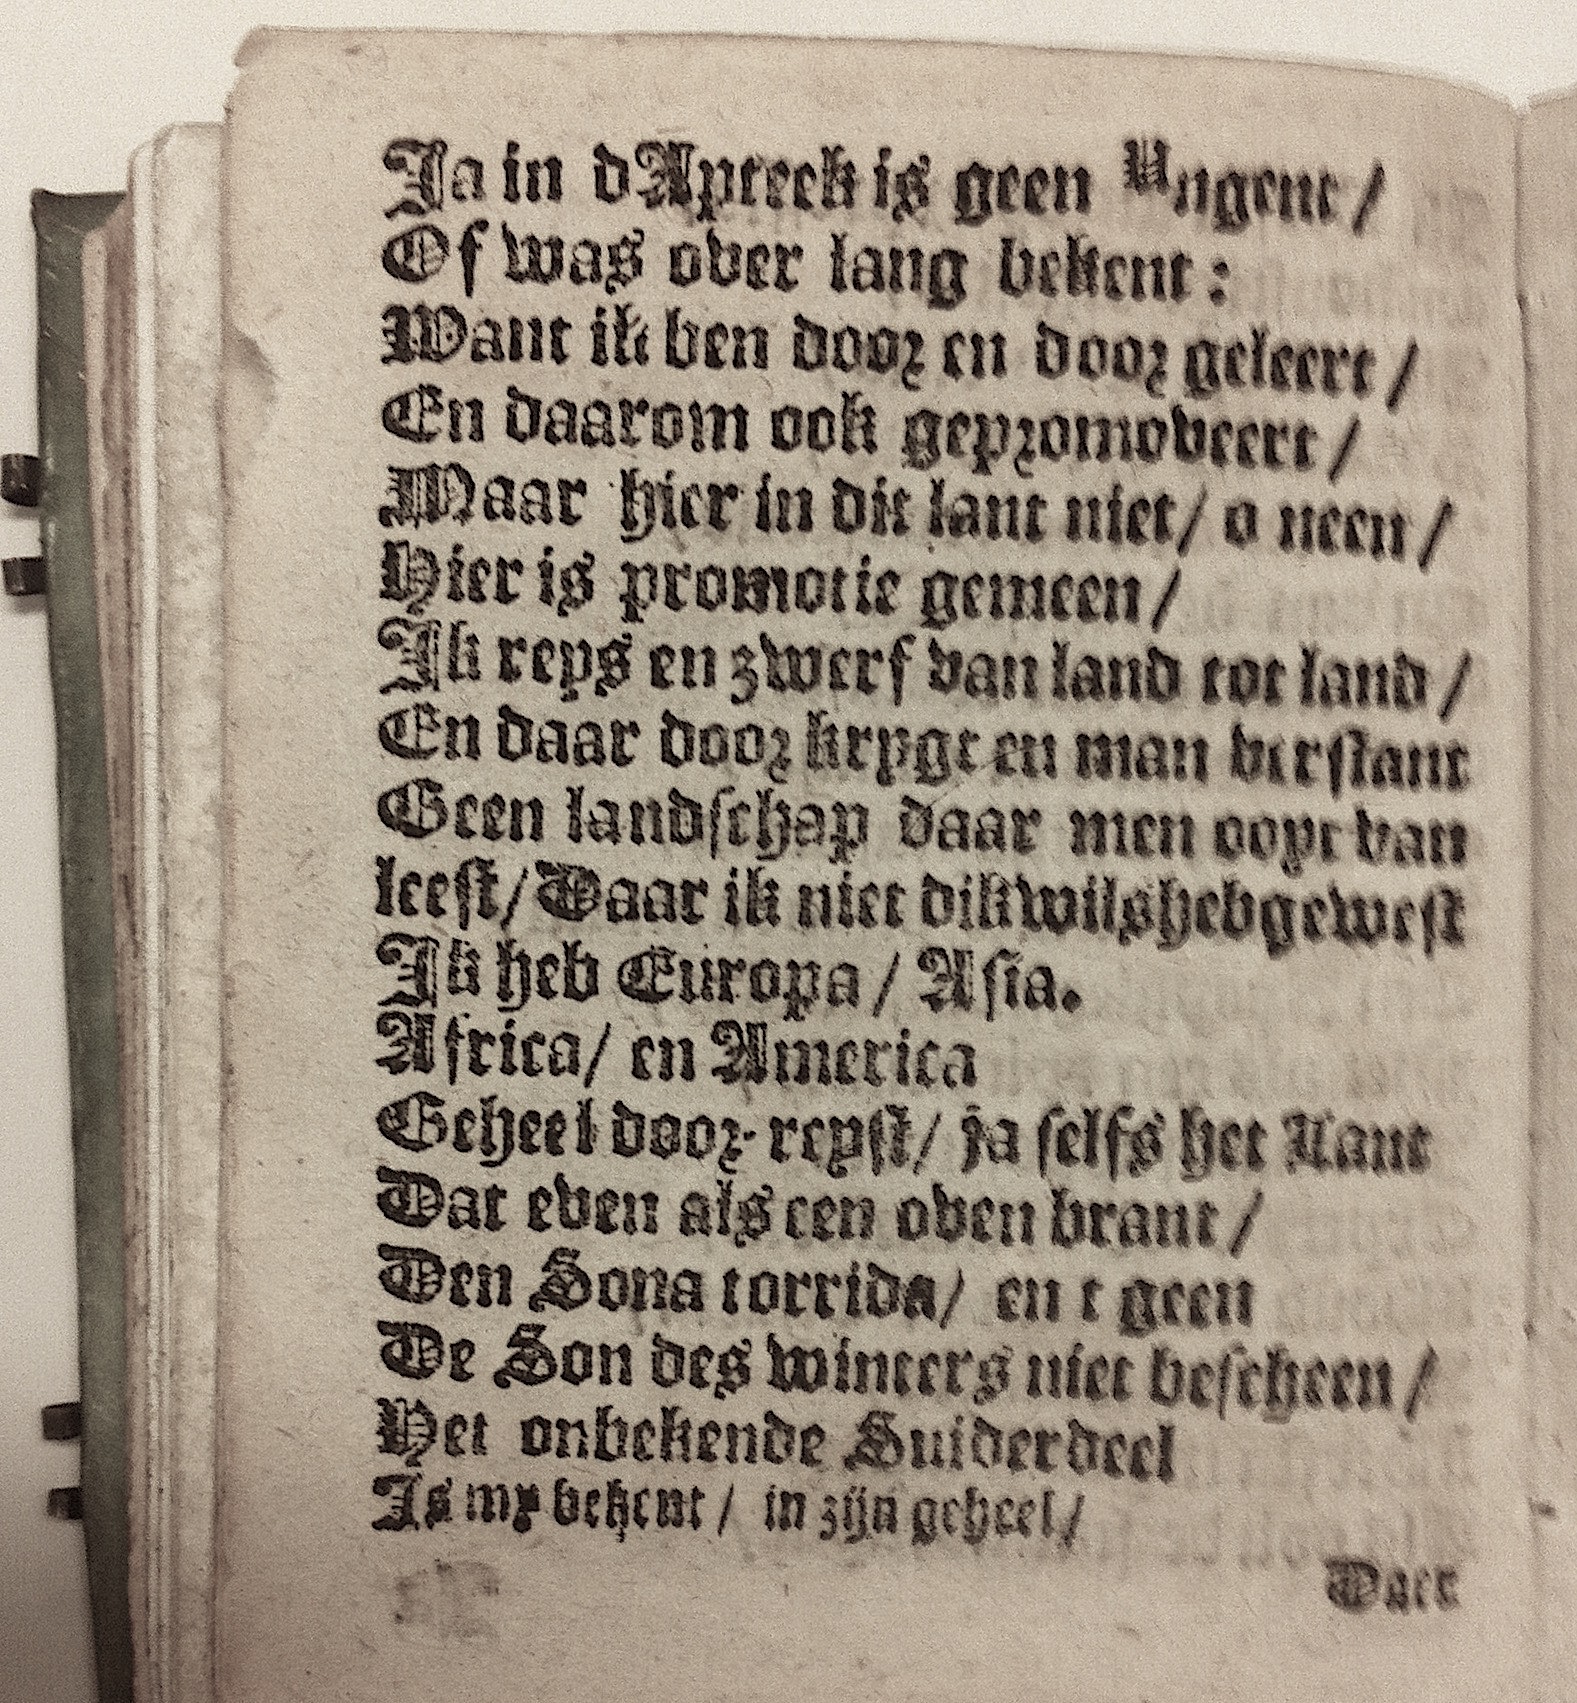 Ja in dApteek is geen Ungent /
Of was over lang bekent :
Want ik ben door en door geleert /
En daarom ook gepromoveert /
Maar hier in dit lant niet / o neen /
Hier is promotie gemeen /
Ik reys en zwerf van land tot land /
En daar door krygt en man verstant
Geen landschap daar men ooyt van
leest / Daar ik niet dikwilshebgewest
Ik heb Europa / Asia.
Africa / en America
Geheel door-reyst / ja selfs het Nant
Dat even als een oven brant /
Den Sona torrida / en t geen
De Son des winters niet bescheen /
Het onbekende Suiderdeel
Is my bekent / in zijn geheel /
Daer